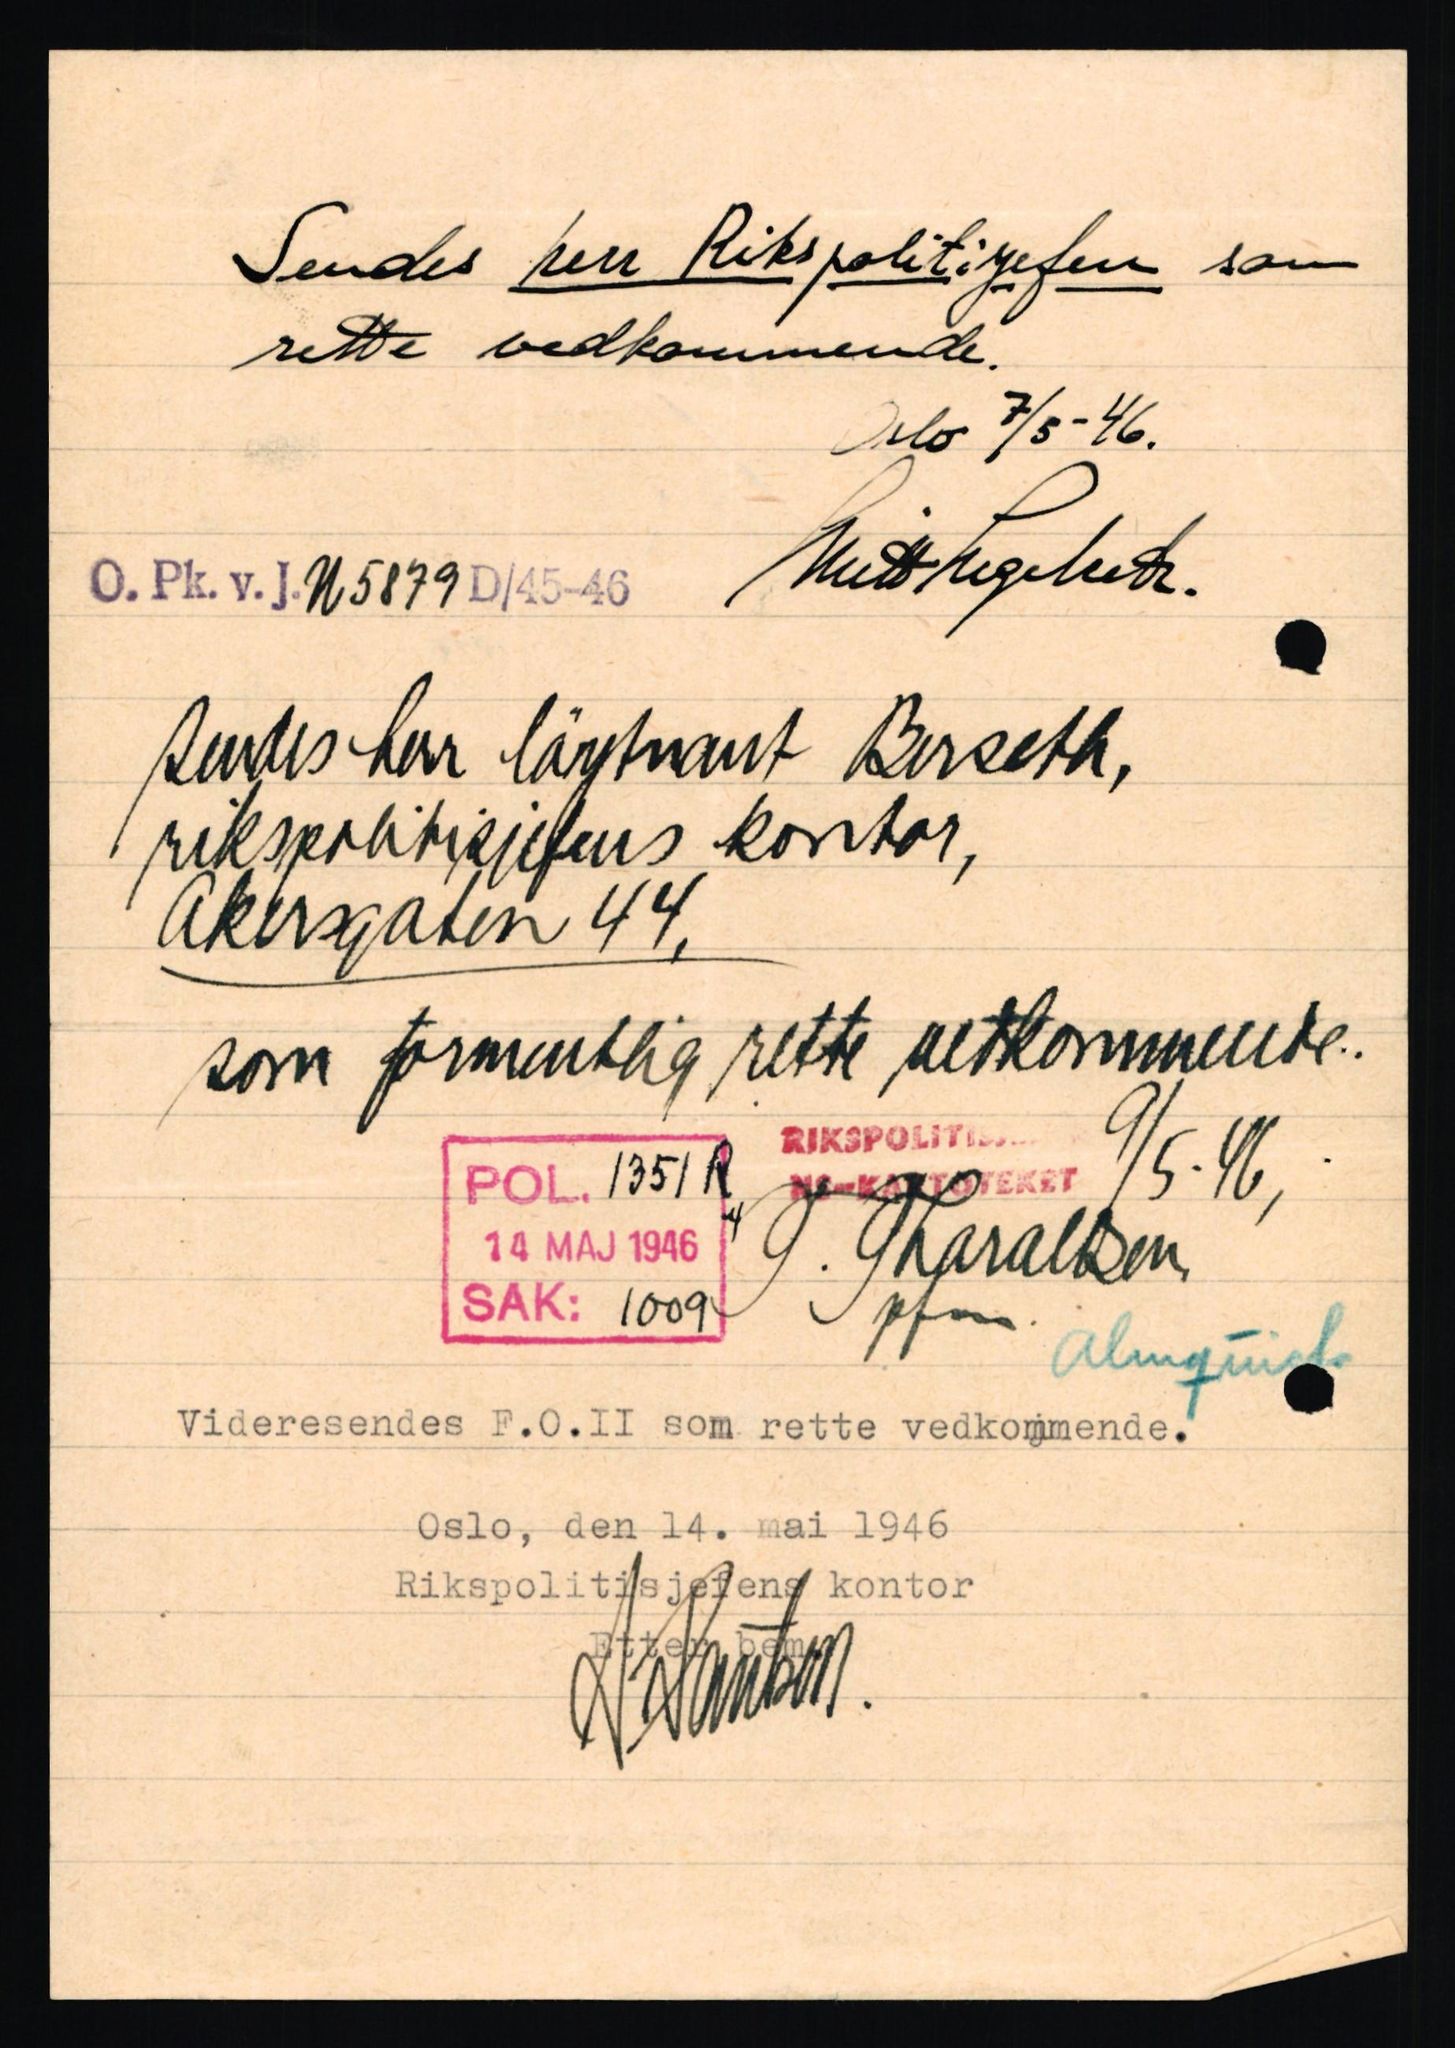 Sendes herr Rikspolitisjefen som
rette vedkommende.
Oslo 7/5-46.
O. Pk. v. J. N 5879 D/45-46
Sendes herr löytnant Berseth,
rikspolitisjefens kontor,
Akersgaten 44,
som formentlig rette vedkommende.
9/5-46,
RIKSPOLITISJ
NS-KARTOTEKET
POL. 1351 R
14 MAJ 1946
SAK: 1009
T. Tharaldsen
pfm.
Almquist
Videresendes F.O.II som rette vedkommende.
Oslo, den 14. mai 1946
Rikspolitisjefens kontor
Etter bem